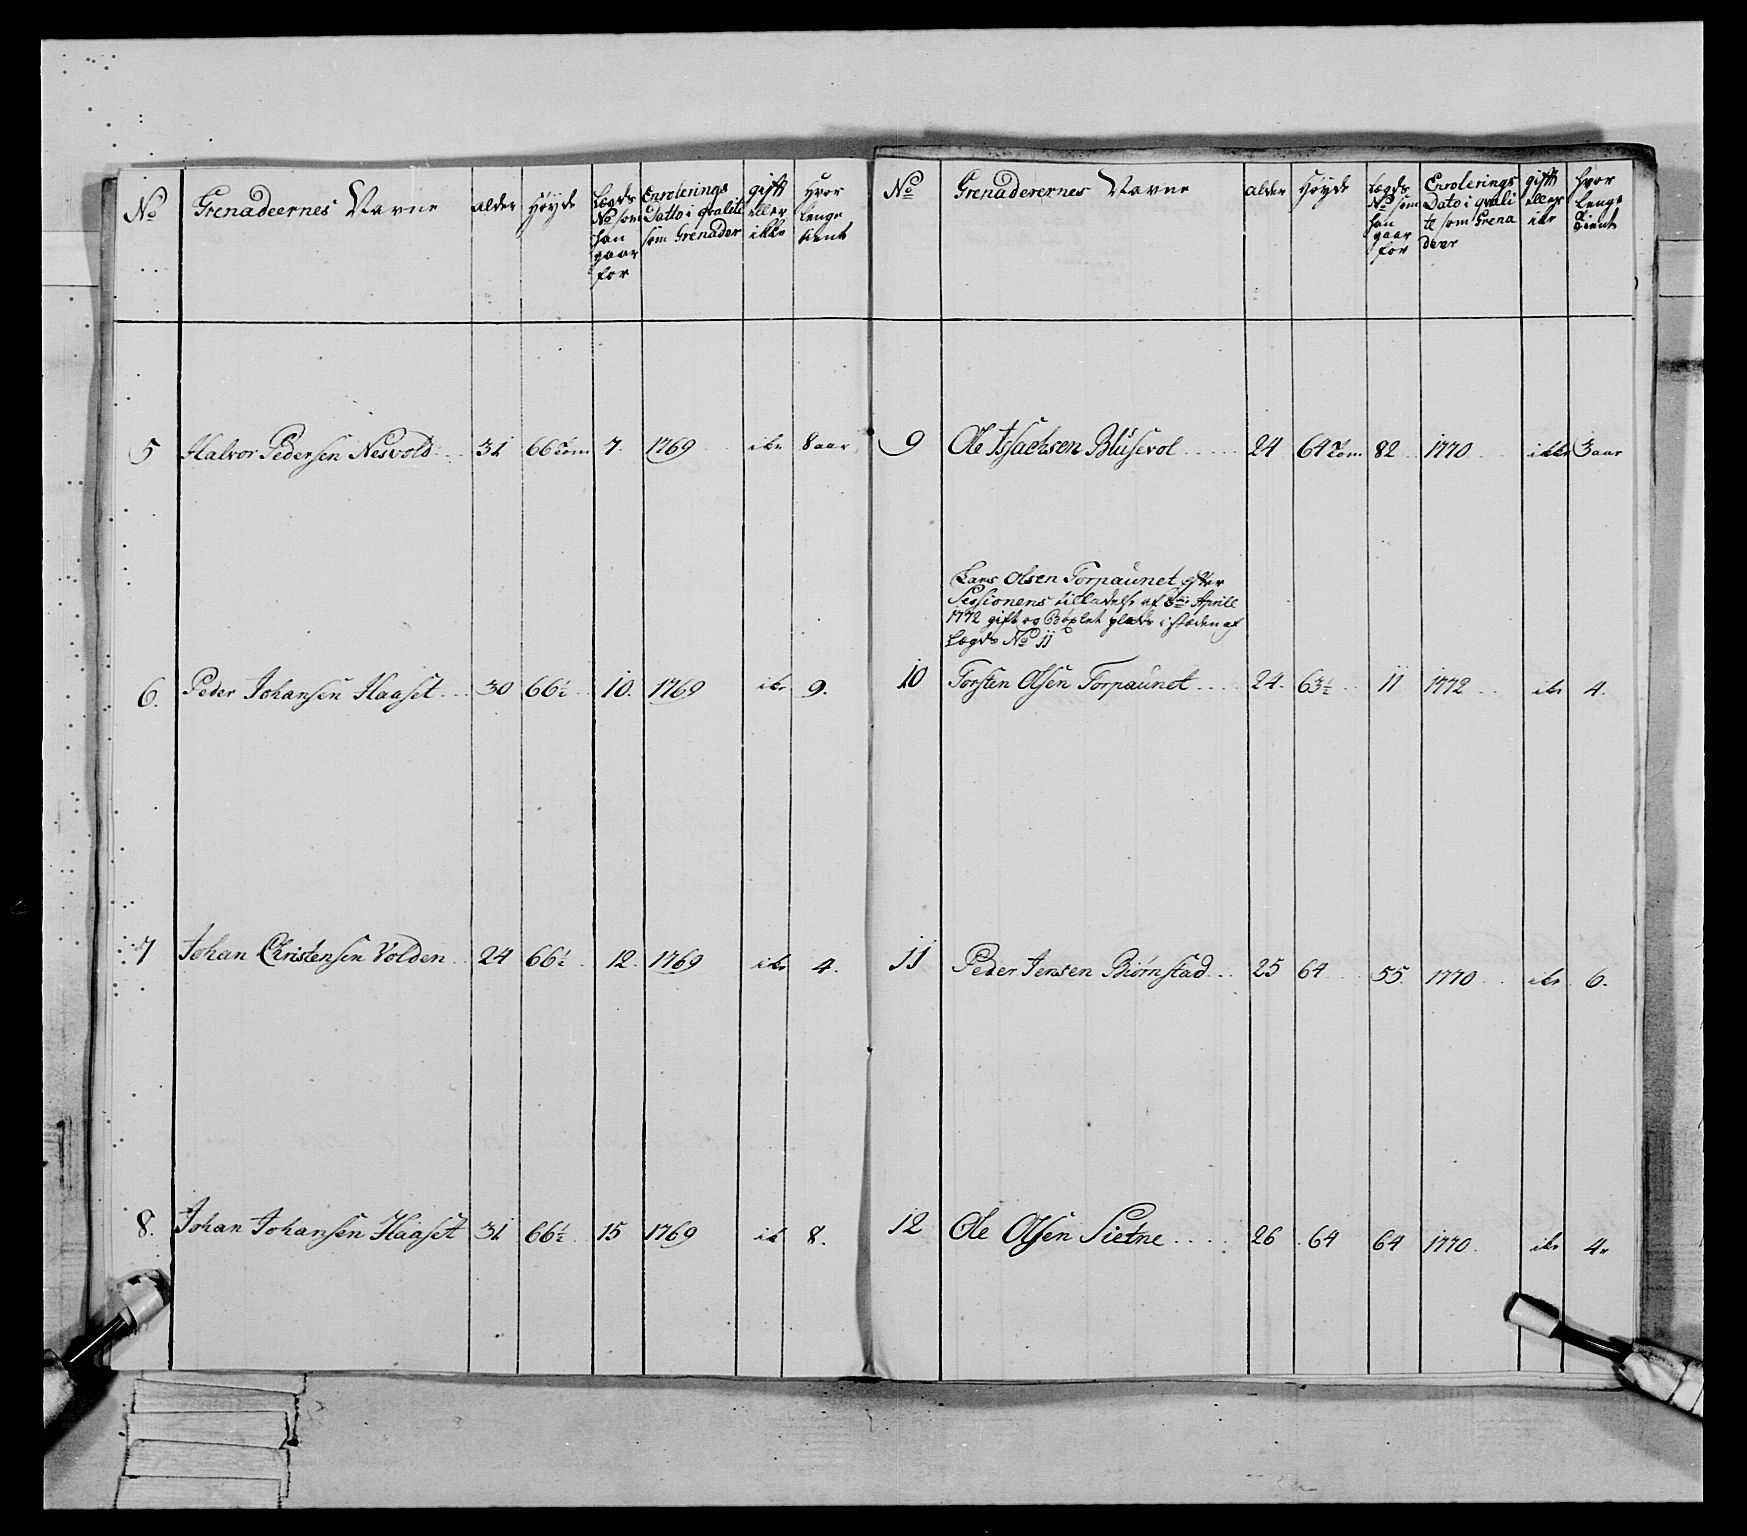 No Grenadeernes Navne alder Høyde Lægds No som han gaar for Enrolerings Datto i qvalite som Grenader gift eller ikke Hvor lenge tient
5 Halvor Pedersen Nesvold 31 66 Tom 7. 1769 ike 8 aar
6. Peder Johansen Haaset 30 66½ 10. 1769 ike 9.
7 Johan Christensen Volden 24 66½ 12. 1769 ike 4.
8. Johan Johansen Haaset 31 66½ 15 1769 ik 8.
No Grenaderernes Navne alder Høyde Lægds No som han gaar for Enrolerings Dato i qvalite som Grenadeer gift eller ike hvor lenge tient
9 Ole Issachsen Blusevol 24 64 Tom 82 1770 ikke 3 aar
Lars Olsen Torpaunet efter
Sessionens tilladelse af Aprill
1772 gift og i steden af
Lægds No 11
10 Torsten Olsen Torpaunet 24. 63½ 11 1772 ike 4.
11 Peder Jensen Biørnstad 25 64 55. 1770 ike 6.
12 Ole Olsen Sietne 26 64 64 1770. ike 4